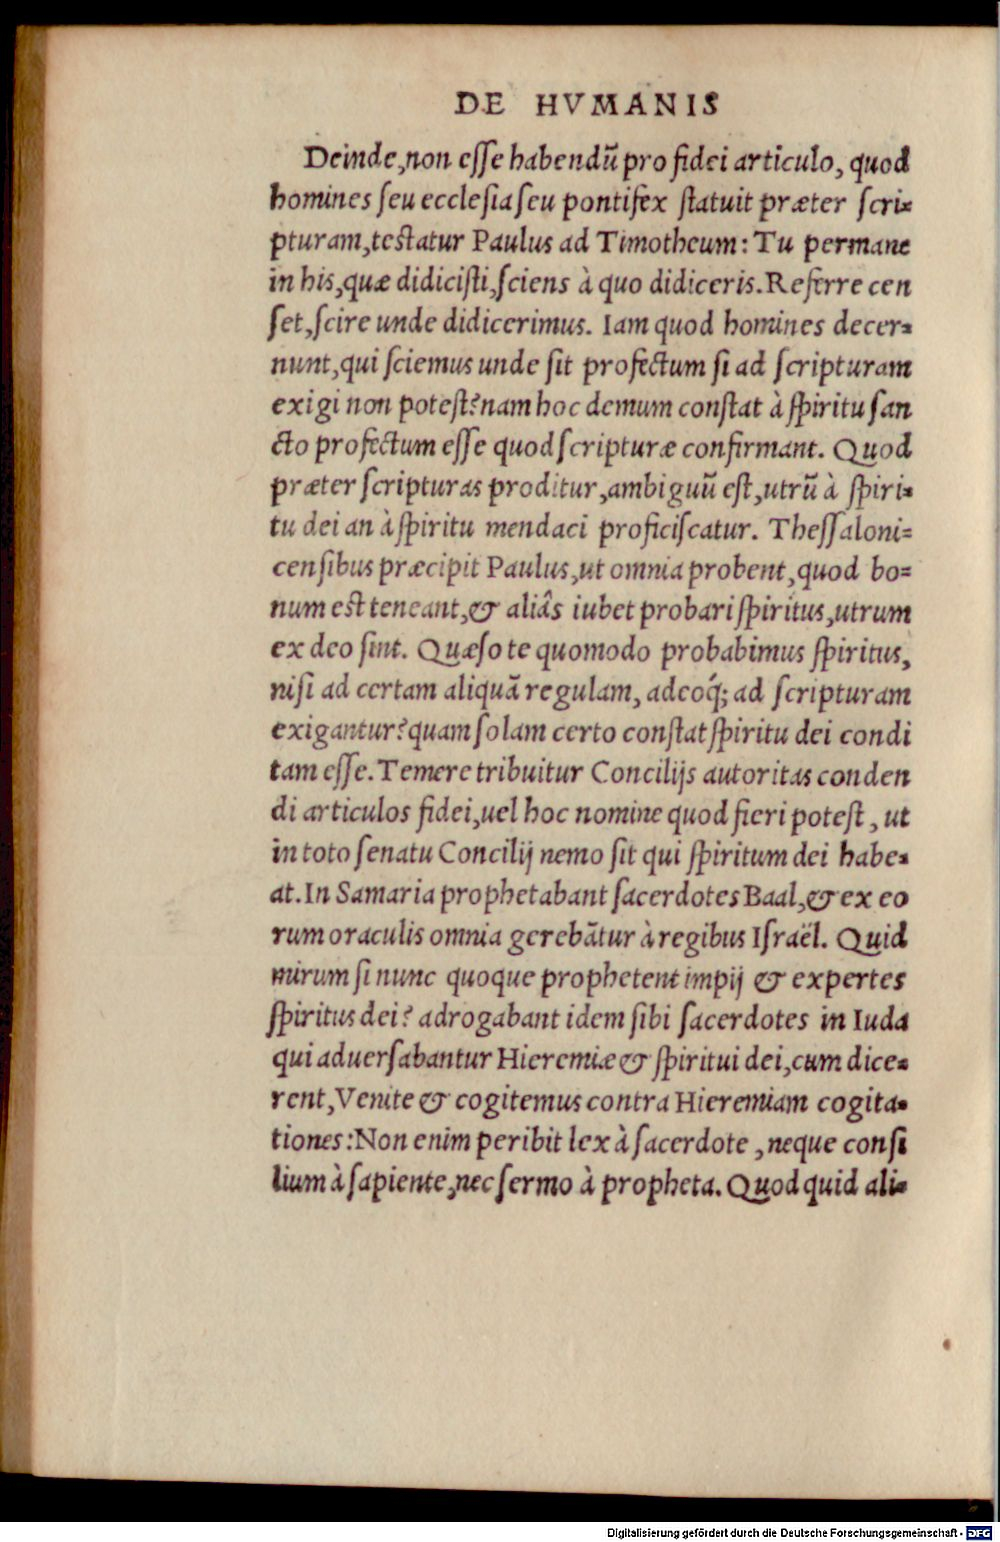 DE HVMANIS
Deinde, non esse habendū pro fidei articulo, quod
homines seu ecclesia seu pontifex statuit præter scri-
pturam, testatur Paulus ad Timotheum: Tu permane
in his, quæ didicisti, sciens à quo didiceris. Referre cen
set, scire unde didicerimus. Iam quod homines decer-
nunt, qui sciemus unde sit profectum si ad scripturam
exigi non potest? nam hoc demum constat à spiritu san
cto profectum esse quod scripturæ confirmant. Quod
præter scripturas proditur, ambiguū est, utrū à spiri-
tu dei an à spiritu mendaci proficiscatur. Thessaloni-
censibus præcipit Paulus, ut omnia probent, quod bo-
num est teneant, & aliâs iubet probari spiritus, utrum
ex deo sint. Quæso te quomodo probabimus spiritus,
nisi ad certam aliquā regulam, adeoq́; ad scripturam
exigantur? quam solam certo constat spiritu dei condi
tam esse. Temere tribuitur Concilijs autoritas conden
di articulos fidei, uel hoc nomine quod fieri potest, ut
in toto senatu Concilij nemo sit qui spiritum dei habe-
at. In Samaria prophetabant sacerdotes Baal, & ex eo
rum oraculis omnia gerebātur à regibus Israël. Quid
mirum si nunc quoque prophetent impij & expertes
spiritus dei? adrogabant idem sibi sacerdotes in Iuda
qui aduersabantur Hieremiæ & spiritui dei, cum dice-
rent, Venite & cogitemus contra Hieremiam cogita-
tiones: Non enim peribit lex à sacerdote, neque consi
lium à sapiente, nec sermo à propheta. Quod quid ali-
Digitalisierung gefördert durch die Deutsche Forschungsgemeinschaft - DFG